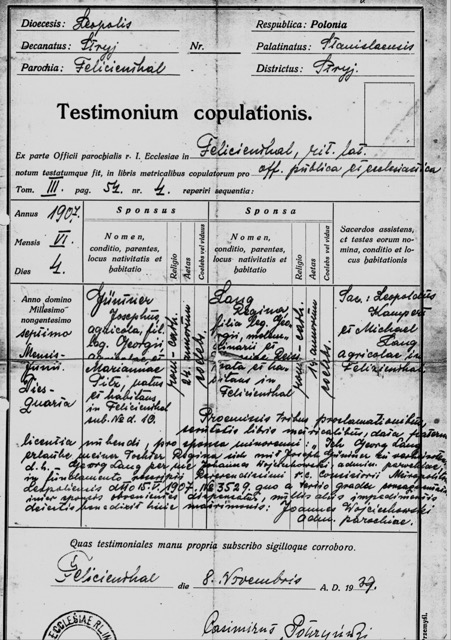 Dioecesis: Leopolis
Respublica: Polonia
Decanatus: Stryj
Nr.
Palatinatus: Stanislaensis
Parochia: Felicienthal
Districtus: Stryj.
Testimonium copulationis.
Ex parte Officii parochialis r. l. Ecclesiae in Felicienthal, rit. lat.
notum testatumque fit, in libris metricalibus copulatorum pro off. publica, et ecclesiastica
Tom. III. pag. 54. nr. 4. reperiri sequentia:
Annus 1907.
Mensis VI.
Dies 4.
Sponsus
Nomen,
conditio, parentes,
locus nativitatis et
habitatio
Religio
Aetas
Coelebs vel viduus
Sponsa
Nomen,
conditio, parentes,
locus nativitatis et
habitatio
Religio
Aetas
Coelebs vel vidua
Sacerdos assistens,
et testes eorum no-
mina, conditio et lo-
cus habitationis
Anno domino
Millesimo
nongentesimo
septimo
Mensis
Junii
Dies
Quarta
Josephus
agricola, fil.
leg. Georgii
Mariannae
Pilz, natus
et habitans
in Felicienthal
sub. No d. 13.
rom-cath.
24 annorum
coelebs.
Lang
Regina
filia leg. Geo-
rgii,
et
et habi-
tans in
Felicienthal
rom-cath.
19 annorum
coelebs.
Sac.: Leopoldus
et Michael
Lang
agricolae in
Felicienthal
Praemissis tribus proclamationibus,
libris metricalibus, data paterna
licentia nubendi, pro sponsa minorenni: "Ich Georg Lang
erlaube meiner Tochter Regina sich mit Joseph
d. h. Georg Lang per me Johannes Wojciechowski admin. parochiae,
in fundamento Reverendissimi r. l. Consistorii Metropolit.
Leopoliensis dtto 15.V. 1907. No 3529. quo a tertio gradu
inter sponsos obveniente dispensatur, nullis aliis impedimentis
detectis benedixit huic matrimonio: Joannes Wojciechowski
adm. parochiae.
Quas testimoniales manu propria subscribo sigilloque corroboro.
Felicienthal die 8. Novembris A. D. 1939.
ECCLESIAE
Casimirus